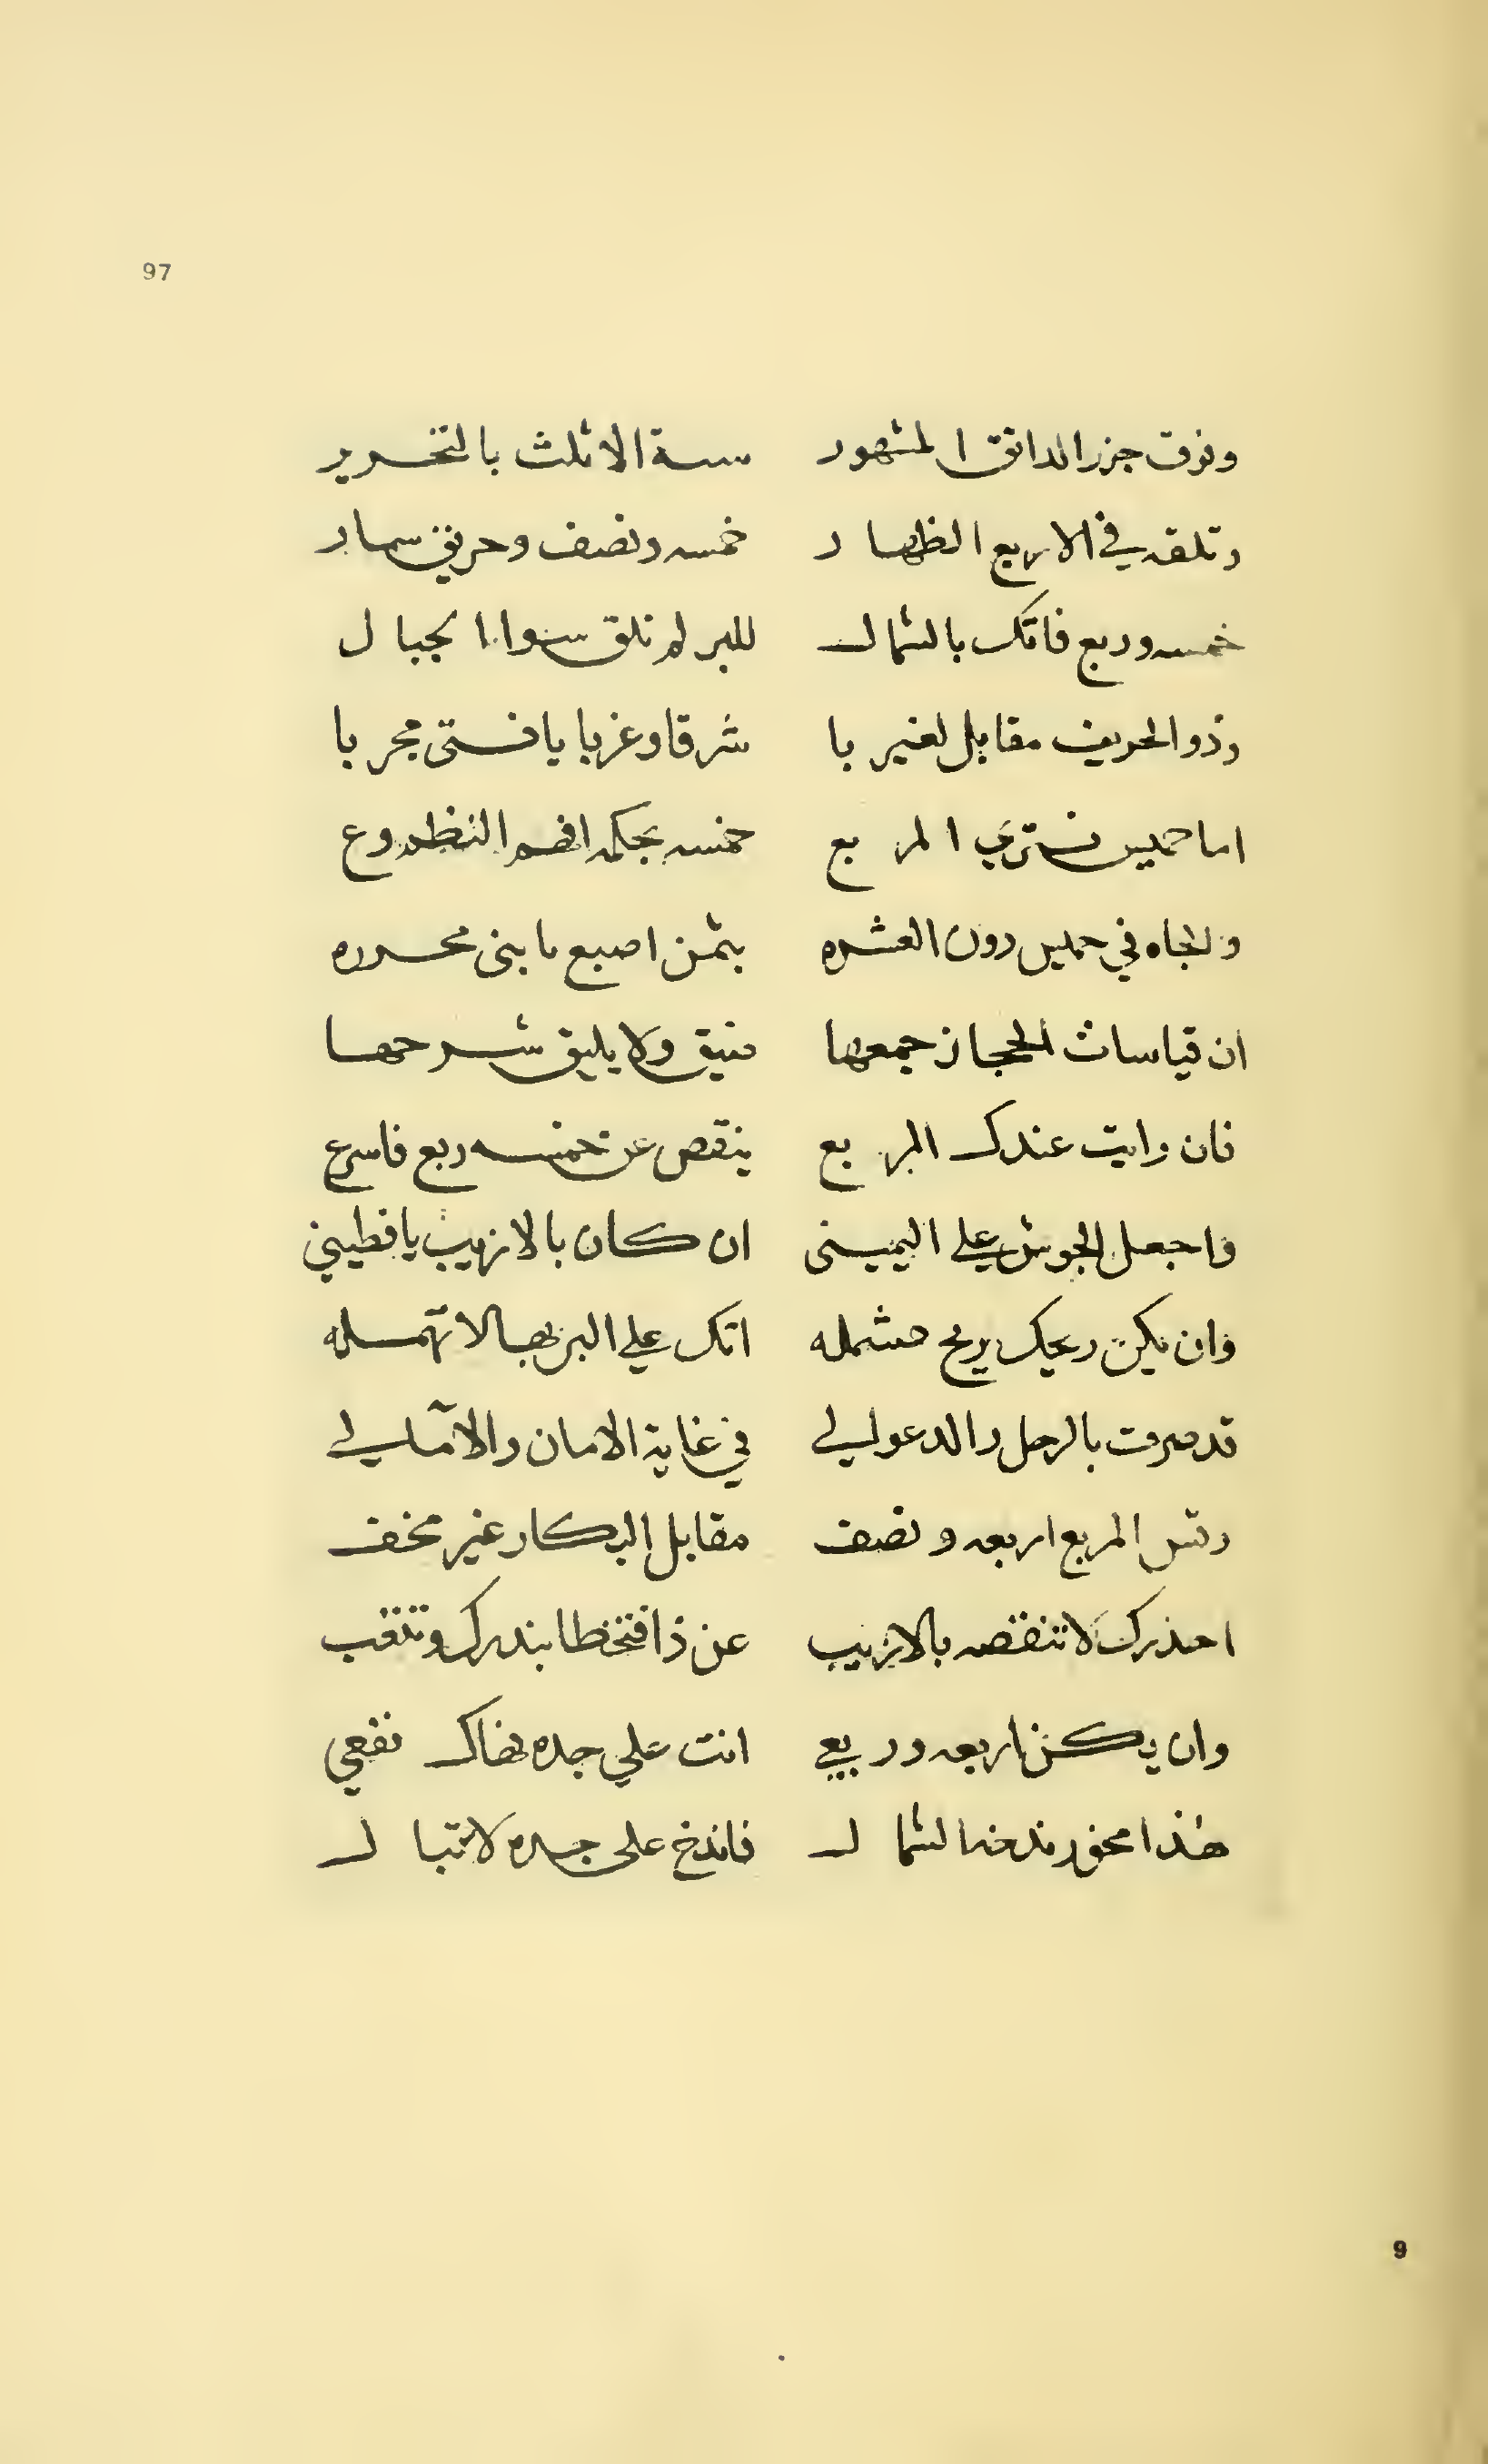 97
وفوق جزر الدانق المشهور ستة الا ثلث بالتحرير
وتلقه في الاربع الظهار خمسه ونصف وحريق سمار
خمسه وربع فاتك بالشمال للبر لم تلق سوا الجبال
وذو الحريف مقابل لغير با شرقا وغربا يا فتى مجربا
اما حميس فستري المربع خمسه بحكمه افهم النظم وع
والجاه في حميس دون العشره بثمن اصبع يا بني محرره
ان قياسات الحجاز جمعها ضيق ولا يليق شرحها
فان رايت عندك المربع ينقص عن خمسه ربع فاسرع
واجعل الجوش علي اليميني ان كان بالازيب يا فطيني
وان يكن ريحك ريح مشمله اتك علي البر بها لا تمهله
قد صرت بالرحل والدعوالي في غاية الامان والآمالي
وقس المربع اربعه ونصف مقابل البكار غير مخف
احذرك لا تنقصه بالازيب عن ذا فتخطا بندرك وتتعب
وان يكن اربعه وربعي انت علي جده بهاك نفعي
هذا محقور الشمال فاندخ على جده لا تبال
9